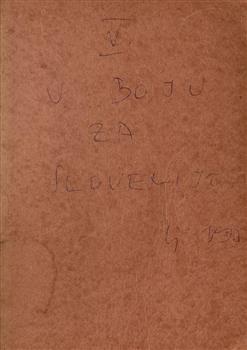 V
V BOJU
ZA
SLOVENIJO